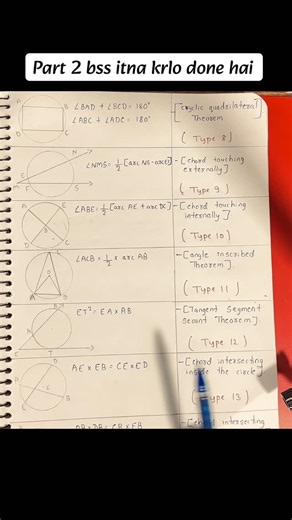 Part 2 bss itna krlo done hai
A B D C
∠BAD + ∠BCD = 180°
∠ABC + ∠ADC = 180°
[cyclic quadrilateral]
Theorem
( Type 8 )
N M E F S
∠NMS = 1/2 [arc NS - arc
-[chord touching
externally]
( Type 9 )
A E B D C
∠ABE = 1/2 [arc AE + arc DC]
-[chord touching
internally]
( Type 10 )
C O A B
∠ACB = 1/2 x arc AB
-[angle inscribed
Theorem]
( Type 11 )
B A E T
ET² = EA x AB
-[Tangent Segment
secant Theorem].
( Type 12 )
D A E C B
AE x EB = CE x ED
-[chord intersecting
inside the circle]
( Type 13 )
-[chord intersecting